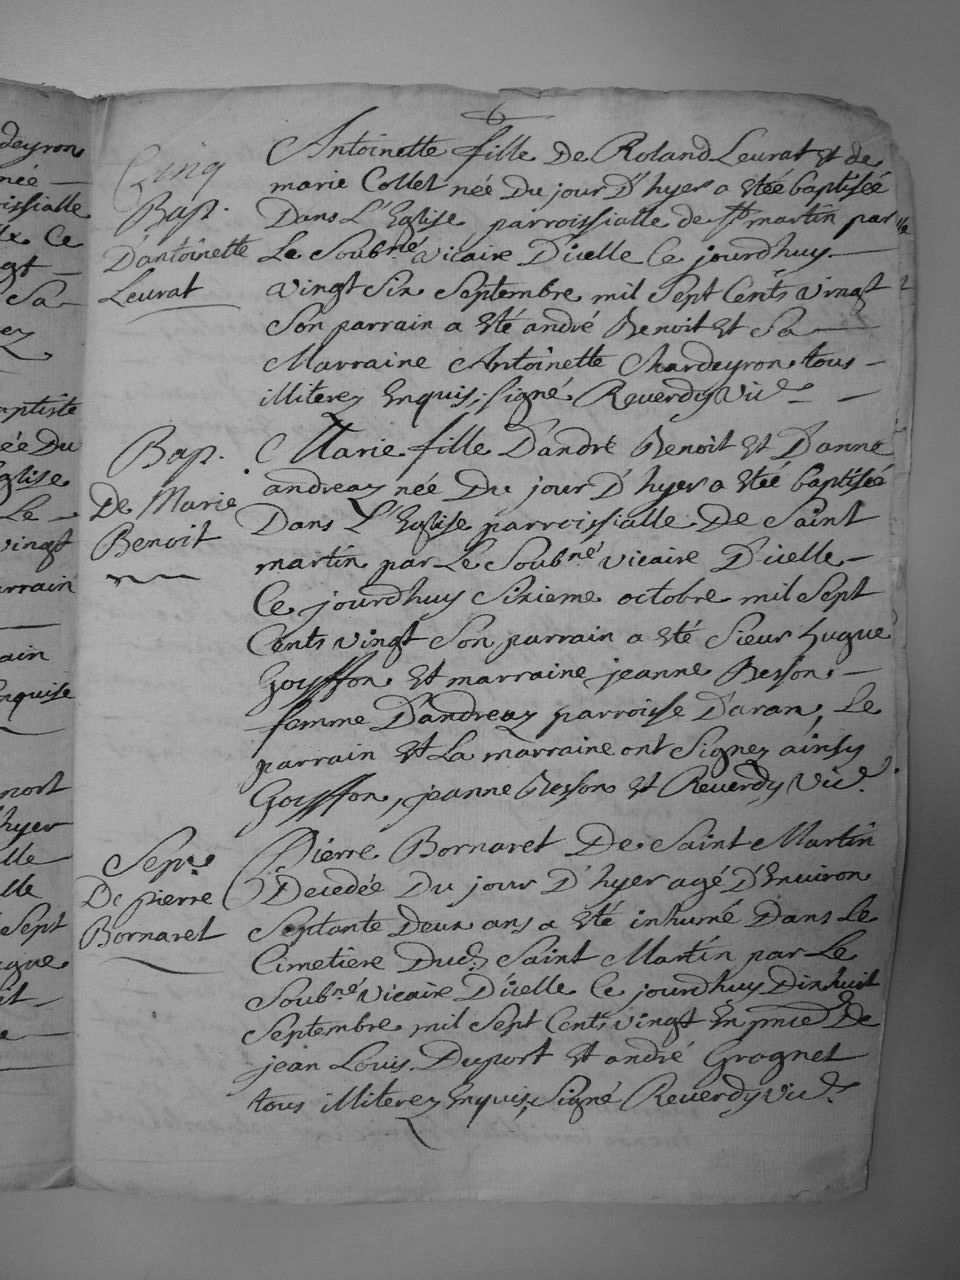 deyron
née
roissialle
Ce
gt
Sa
ez
aptiste
née Du
glise
Le
vingt
arrain
ain
Enquise
port
hyer
lle
lle
Sept
ugue
et
6
Cinq
Bap.
D'antoinette
Leurat
Antoinette fille De Roland Leurat Et de
marie Collet née Du jour D'hyer a Etée baptisée
Dans L'Eglise parroissialle de St martin par
Le Soubné vicaire D'icelle Ce jourdhuy
vingt Six Septembre mil Sept Cents vingt
Son parrain a Eté andré Benoit Et Sa
Marraine Antoinette Chardeyron tous
illiterez Enquis, signé Reverdy Vic.
Bap.
De Marie
Benoit
Marie fille D'andré Benoit Et D'anne
andreaz née Du jour D'hyer a Etée baptisée
Dans L'Eglise parroissialle De Saint
martin par Le Soubné vicaire D'icelle
Ce jourdhuy Sixieme octobre mil Sept
Cents vingt Son parrain a Eté Sieur hugue
Goyffon Et marraine jeanne Besson
femme D'andreaz parroisse D'aran, Le
parrain Et La marraine ont Signez ainsy
Goyffon, jeanne Besson Et Reverdy Vic.
Sepre
De pierre
Bornaret
Pierre Bornaret De Saint Martin
Decedée Du jour D'hyer agé D'Environ
Septante Deux ans a Eté inhumé Dans Le
Cimetiere Dud. Saint Martin par Le
Soubné vicaire D'icelle Ce jourdhuy Dixhuit
Septembre mil Sept Cents vingt En pnce De
jean Louis Duport Et andré Grognet
tous illiterez Enquis, Signé Reverdy Vic.